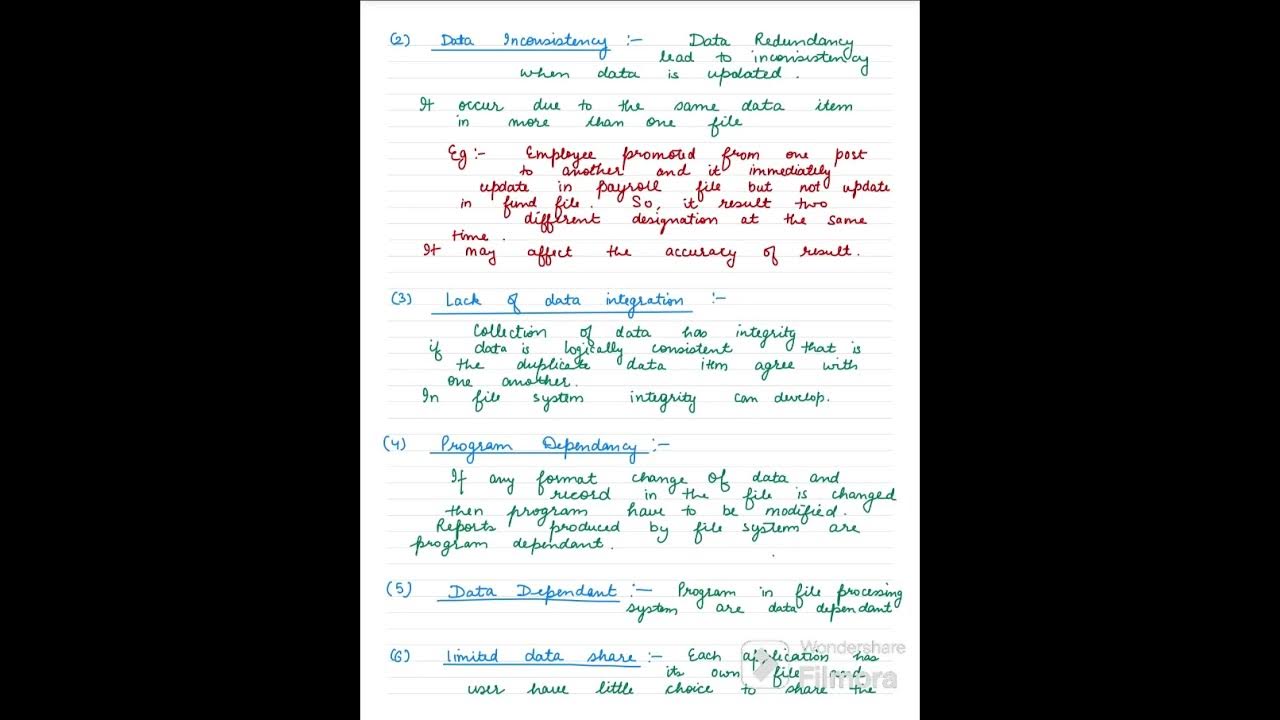 (2) Data Inconsistency :- Data Redundancy
lead to inconsistency
when data is updated.
It occur due to the same data item
in more than one file
Eg :- Employee promoted from one post
to another and it immediately
update in payroll file but not update
in fund file. So, it result two
different designation at the same
time.
It may affect the accuracy of result.
(3) Lack of data integration :-
Collection of data has integrity
if data is logically consistent that is
the duplicate data item agree with
one another.
In file system integrity can develop.
(4) Program Dependancy :-
If any format change of data and
record in the file is changed
then program have to be modified.
Reports produced by file system are
program dependant.
(5) Data Dependant :- Program in file processing
system are data dependant
(6) limited data share :- Each application has
its own file and
user have little choice to share the
Wondershare
Filmora